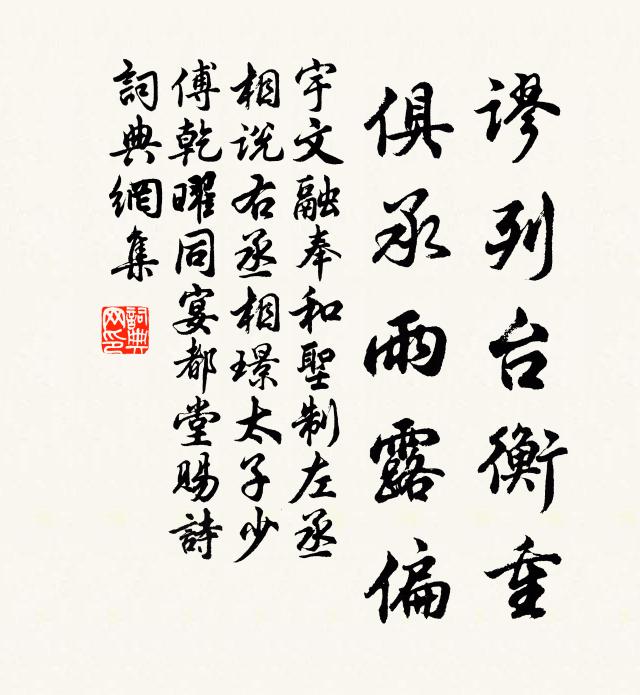 謬列台衡重
俱承雨露偏
宇文融奉和聖制左丞
相说右丞相璟太子少
傅乾曜同宴都堂賜詩
詞典網集
詞典网印